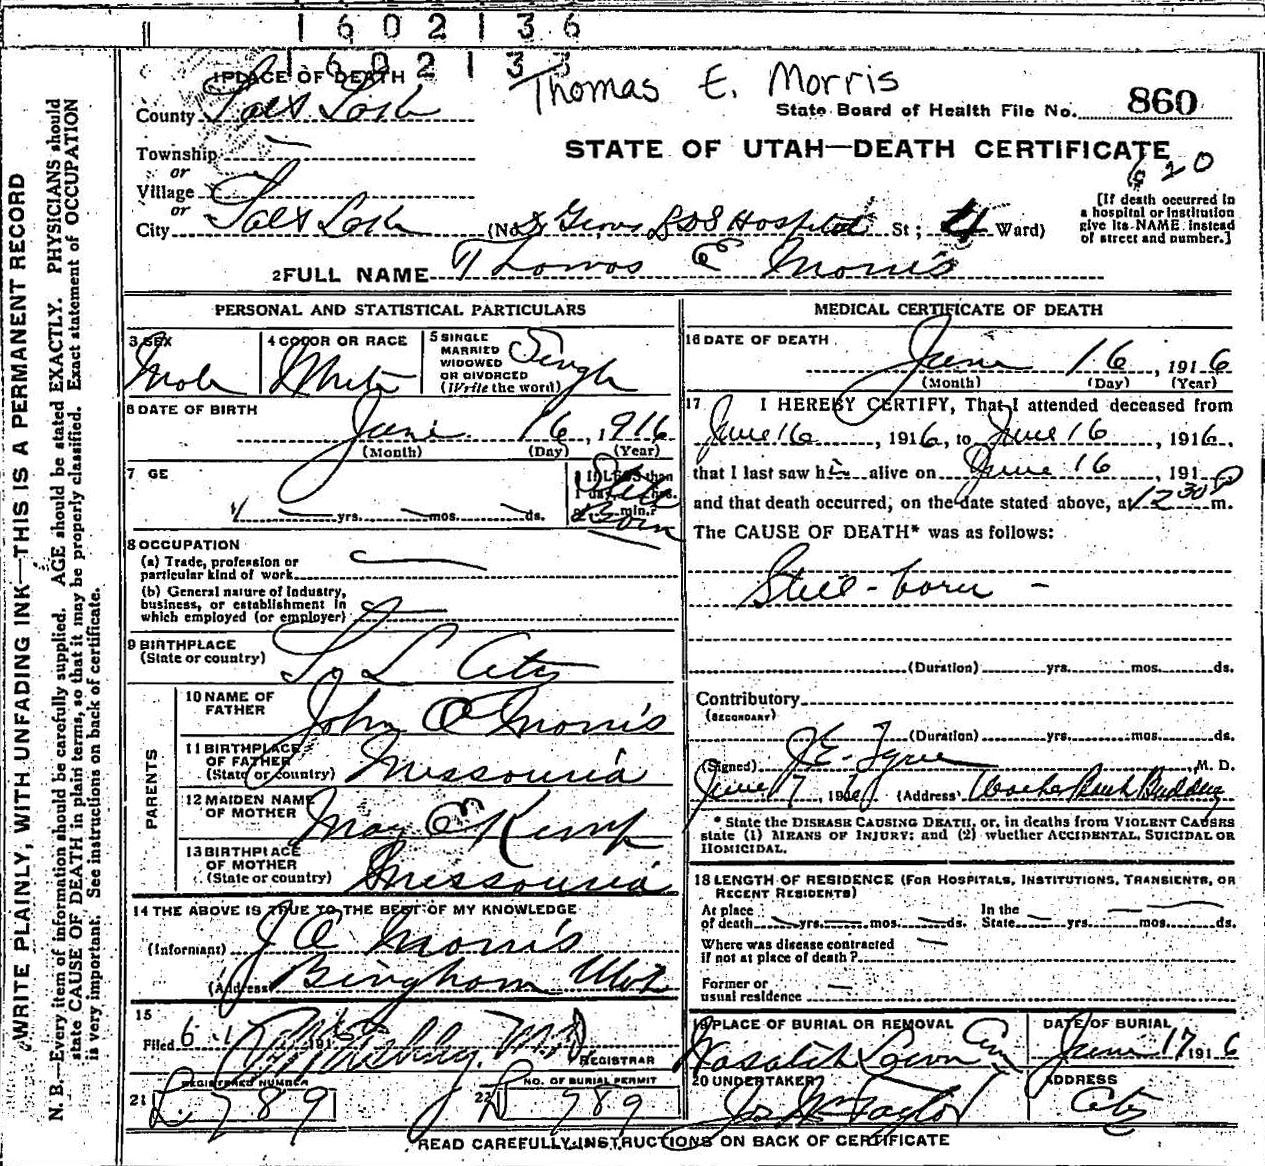 1602136
1602133
1 PLACE OF DEATH
Thomas E. Morris
County Salt Lake
State Board of Health File No. 860
Township
STATE OF UTAH—DEATH CERTIFICATE
or
Village
620
or
City Salt Lake (No. LDS Hospital St; 4 Ward)
[If death occurred in a hospital or institution give its NAME instead of street and number.]
2 FULL NAME Thomas E Morris
PERSONAL AND STATISTICAL PARTICULARS
3 SEX
Male
4 COLOR OR RACE
White
5 SINGLE
MARRIED
WIDOWED
OR DIVORCED
(Write the word)
Single
6 DATE OF BIRTH
June 16, 1916
(Month) (Day) (Year)
7 GE
yrs. mos. ds.
If LESS than
1 day, hrs.
or min.?
Still Born
8 OCCUPATION
(a) Trade, profession or
particular kind of work
(b) General nature of industry,
business, or establishment in
which employed (or employer)
9 BIRTHPLACE
(State or country)
S L City
PARENTS
10 NAME OF
FATHER
John O Morris
11 BIRTHPLACE
OF FATHER
(State or country)
Missouria
12 MAIDEN NAME
OF MOTHER
May E Kemp
13 BIRTHPLACE
OF MOTHER
(State or country)
Missouria
14 THE ABOVE IS TRUE TO THE BEST OF MY KNOWLEDGE
(Informant) J O Morris
(Address) Bingham Utah
15
Filed 6 191
M.D.
REGISTRAR
REGISTERED NUMBER
21 L. 789
NO. OF BURIAL PERMIT
22 L 789
MEDICAL CERTIFICATE OF DEATH
16 DATE OF DEATH
June 16, 1916
(Month) (Day) (Year)
17 I HEREBY CERTIFY, That I attended deceased from
June 16, 1916, to June 16, 1916,
that I last saw h alive on June 16, 191
and that death occurred, on the date stated above, at 12 30 P m.
The CAUSE OF DEATH* was as follows:
Still-born -
(Duration) yrs. mos. ds.
Contributory
(SECONDARY)
(Duration) yrs. mos. ds.
(Signed) J.E. Tyree, M. D.
June 17, 1916 (Address) Walker Bank Building
* State the DISEASE CAUSING DEATH, or, in deaths from VIOLENT CAUSES
state (1) MEANS OF INJURY; and (2) whether ACCIDENTAL, SUICIDAL OR
HOMICIDAL.
18 LENGTH OF RESIDENCE (FOR HOSPITALS, INSTITUTIONS, TRANSIENTS, OR
RECENT RESIDENTS)
At place of death yrs. mos. ds. In the State yrs. mos. ds.
Where was disease contracted
if not at place of death?
Former or
usual residence
19 PLACE OF BURIAL OR REMOVAL
Wasatch Lawn Cem
DATE OF BURIAL
June 17 1916
20 UNDERTAKER
Jos Wm Taylor
ADDRESS
City
READ CAREFULLY INSTRUCTIONS ON BACK OF CERTIFICATE
WRITE PLAINLY, WITH UNFADING INK—THIS IS A PERMANENT RECORD
N. B.—Every item of information should be carefully supplied. AGE should be stated EXACTLY. PHYSICIANS should
state CAUSE OF DEATH in plain terms, so that it may be properly classified. Exact statement of OCCUPATION
is very important. See instructions on back of certificate.